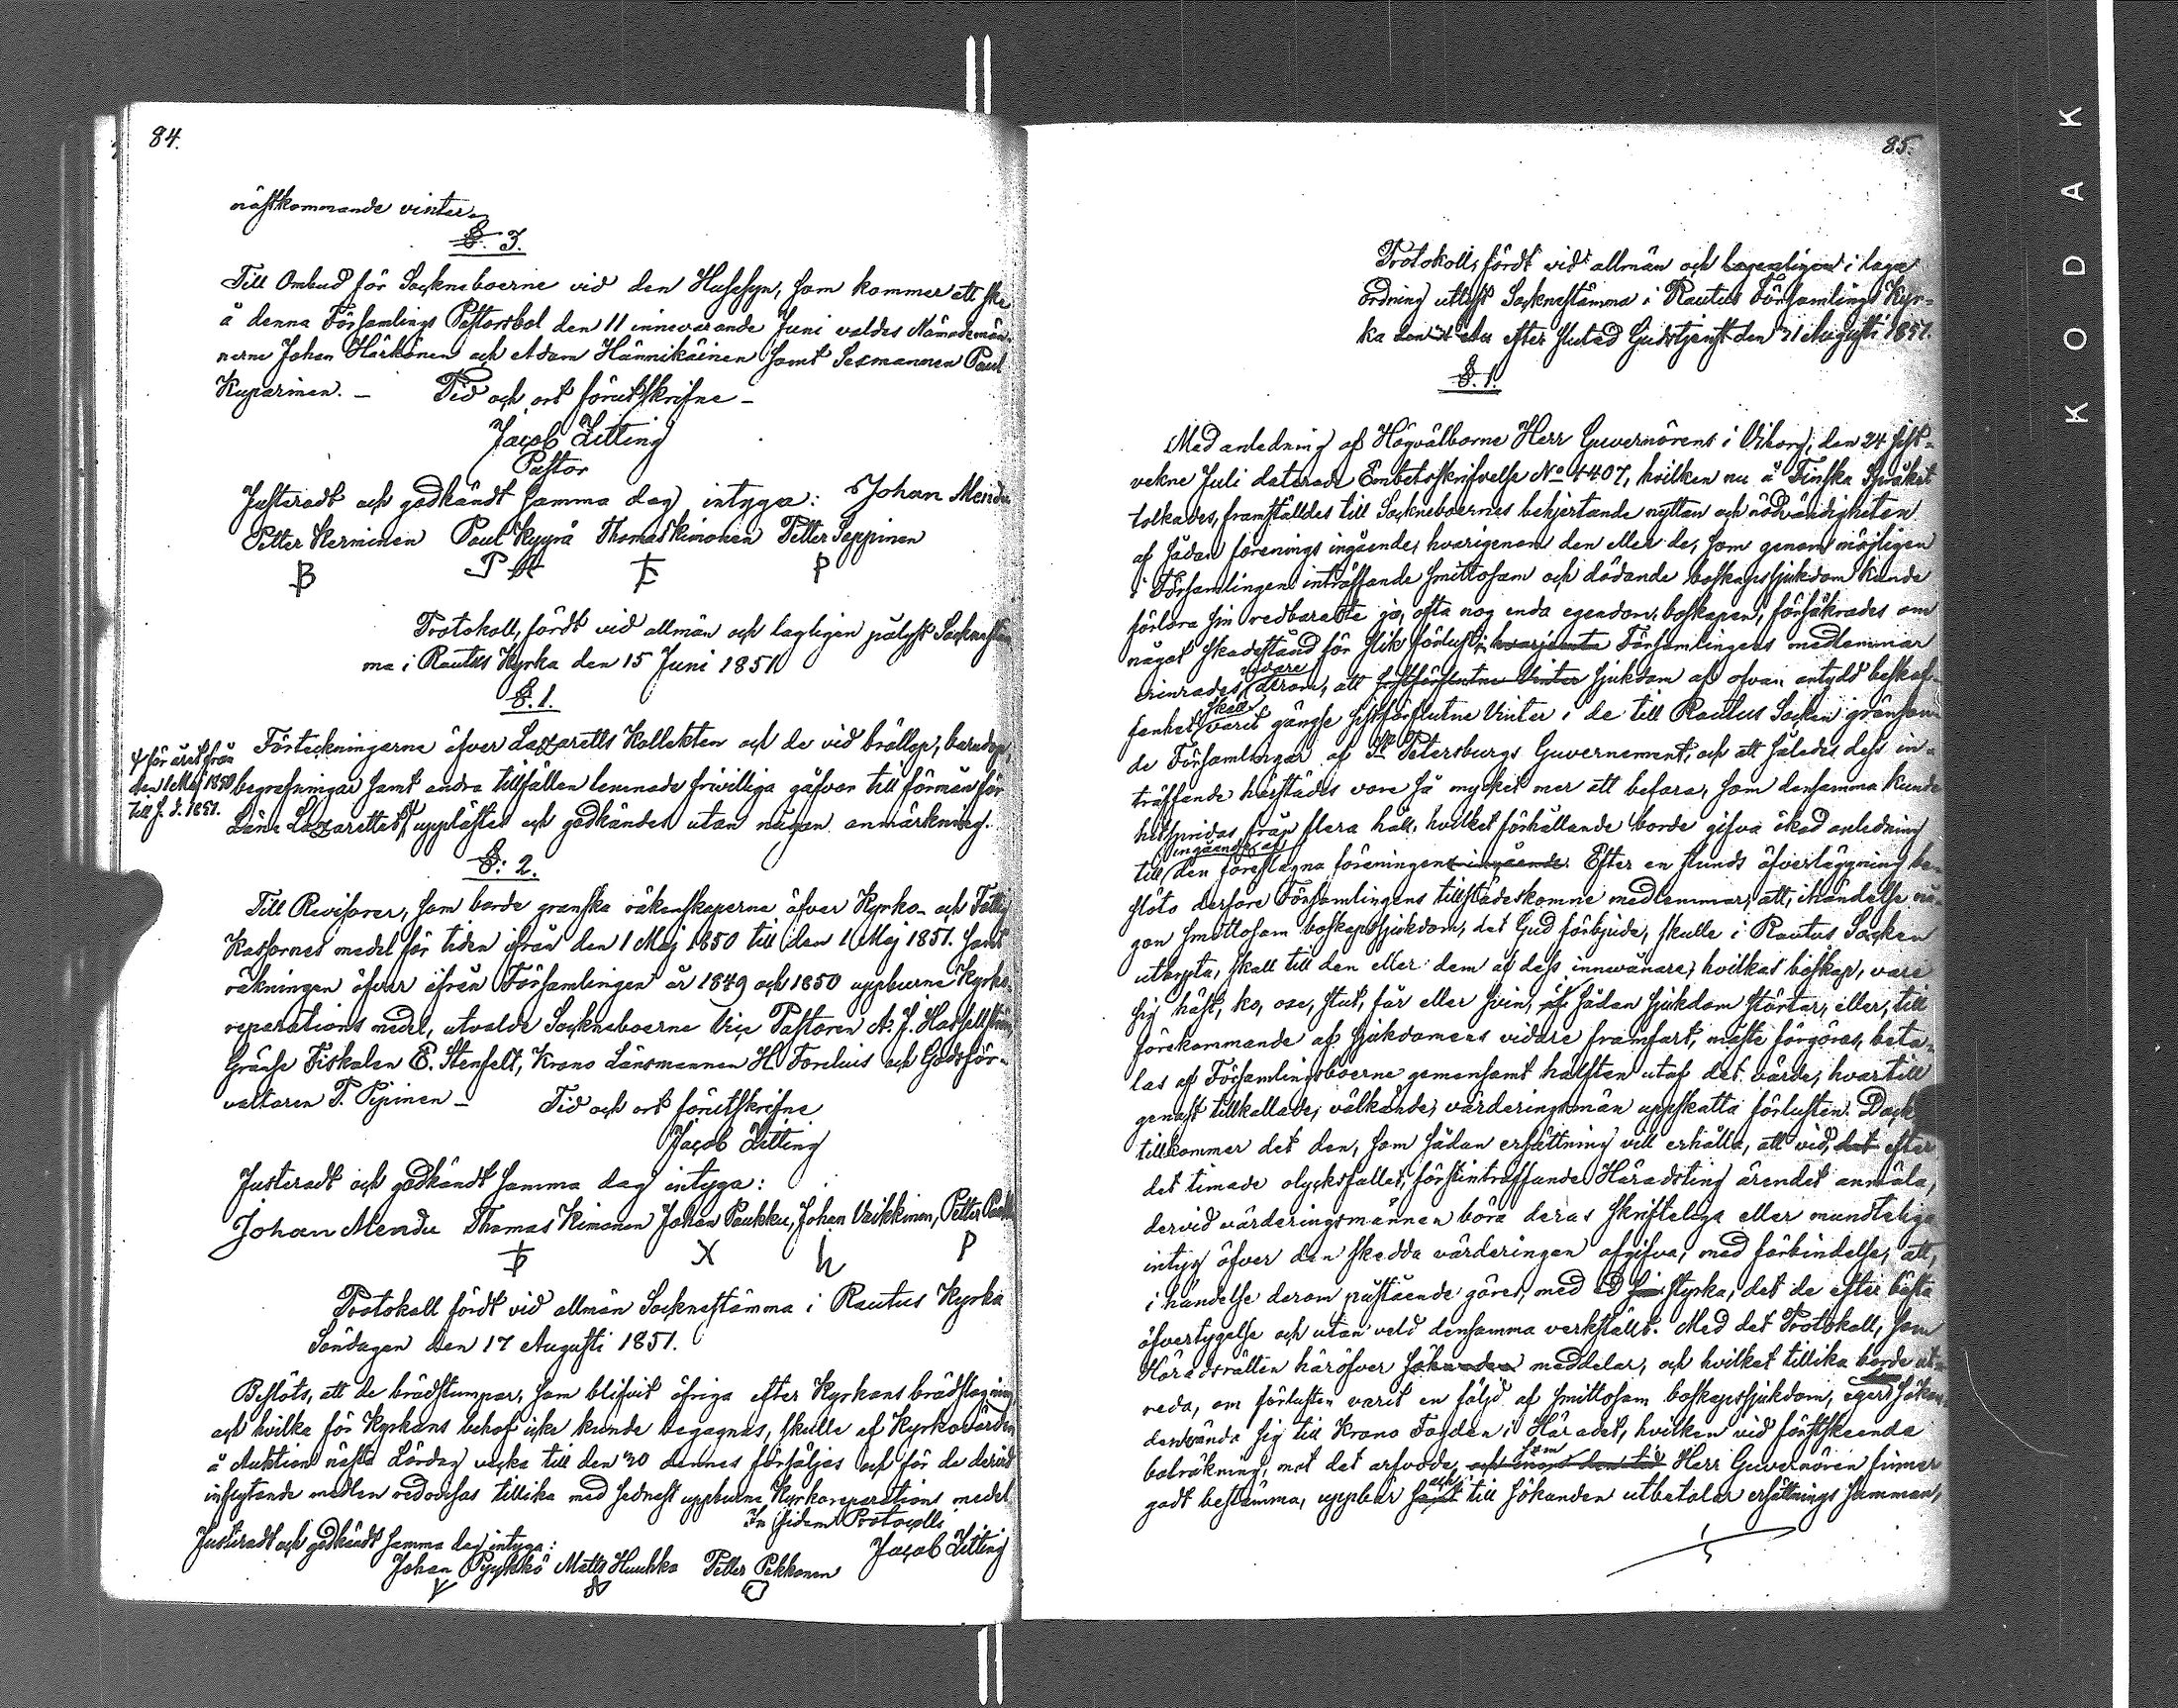 84.
nästkommande vinter.
§. 3.
Till Ombud för Sockneboerne vid den Husesyn, som kommer att ske
å denna Församlings Pastorsbol den 11 innevarande Juni valdes Nämndemän-
nerne Johan Härkönen och Adam Hännikäinen samt Sexmannen Paul
Kuparinen. — Tid och ort förutskrifne —
Jacob Zitting
Pastor
Justeradt och godkändt samma dag intyga: Johan Mendu
Petter Kerminen Paul Kyyrä Thomas Kimonen Petter Seppinen
Protokoll, fördt vid allmän och lagligen pålyst Socknestäm
ma i Rautus Kyrka den 15 Juni 1851
§. 1.
Förteckningarne öfver Lazaretts Kollekten och de vid bröllop, barndop,
begrafningar samt andra tillfällen lemnade frivilliga gåfvor till förmån för
Läns Lazarettet upplästes och godkändes utan någon anmärkning.
för året från
den 1 Maj 1850
till s. d. 1851.
§. 2.
Till Revisorer, som borde granska räkenskaperne öfver Kyrko- och Fattig
Kassornes medel för tiden ifrån den 1 Maj 1850 till den 1 Maj 1851. samt
räkningen öfver ifrån Församlingen år 1849 och 1850 uppburne Kyrko-
reparations medel, utvalde Sockneboerne Vice Pastoren A. J. Hassellström,
Gränse Fiskalen E. Stenfelt, Krono Länsmannen H. Forelius och Godsför-
valtaren P. Pipinen — Tid och ort förutskrifne
Jacob Zitting
Justeradt och godkändt samma dag intyga:
Johan Mendu Thomas Kimonen Johan Paukku, Johan Vaikkinen, Petter
Protokoll fördt vid allmän Socknestämma i Rautus Kyrka
Söndagen den 17 Augusti 1851.
Beslöts, att de brädstumpar, som blifvit öfriga efter Kyrkans brädslagning
och hvilka för Kyrkans behof icke kunde begagnas, skulle af Kyrkovärden
å Auktion nästa Lördag vecka till den 30 dennes försäljas och för de dervid
inflytande medlen redovisas tillika med sednast uppburne Kyrkoreparations medel
In fidem Protocolli
Justeradt och godkändt samma dag intyga: Jacob Zitting
Johan Pyykkö Matts Huuhka Petter Pekkonen
85.
Protokoll, fördt vid allmän och i laga
ordning utlyst Socknestämma i Rautus Församlings Kyr-
ka efter slutad Gudstjenst den 31 Augusti 1851.
§. 1.
Med anledning af Högvälborne Herr Guvernörens i Viborg, den 24 sist-
vekne Juli daterade Embetsskrifvelse No 4407, hvilken nu å Finska Språket
tolkades, framställdes till Sockneboernes behjertande nyttan och nödvändigheten
af sådan förenings ingående, hvarigenom den eller de, som genom möjligen
i Församlingen inträffande smittosam och dödande boskapssjukdom kunde
förlora sin redbaraste ja, ofta nog enda egendom, boskapen, försäkrades om
något skadestånd för slik förlust; hvarjemte Församlingens medlemmar
vidare
erinrades derom, att sistförflutne Vinter sjukdom af ofvan antydd beskaf-
skall
fenhet varit gängse sistförflutne Vinter i de till Rautus Socken gränsan-
de Församlingar af St Petersburgs Guvernement, och att således dess in-
träffande härstädes vore så mycket mer att befara, som densamma kunde
hitspridas från flera håll, hvilket förhållande borde gifva ökad anledning
ingående af
till den föreslagna föreningens ingående. Efter en stunds öfverläggning be-
slöto derföre Församlingens tillstädeskomne medlemmar, att, ihändelse nå-
gon smittosam boskapssjukdom, det Gud förbjude, skulle i Rautus Socken
utbryta, skall till den eller dem af dess innevånare, hvilkas boskap, vare
sig häst, ko, oxe, stut, får eller svin, af sådan sjukdom störtar, eller, till
förekommande af sjukdomens vidare framfart, måste förgöras, beta-
las af Församlingsboerne gemensamt hälften utaf det värde, hvartill
genast tillkallade, välkände, värderingsmän uppskatta förlusten. Dock
tillkommer det den, som sådan ersättning vill erhålla, att vid, det efter
det timade olycksfallet, förstinträffande Häradsting ärendet anmäla,
dervid värderingsmännen böra deras skriftelige eller mundtelige
intyg öfver den skedda värderingen afgifva, med förbindelse, att,
i händelse derom påstående göres, med ed styrka, det de efter bästa
öfvertygelse och utan veld densamma verkställt. Med det Protokoll, som
Häradsrätten häröfver sökanden meddelar, och hvilket tillika borde ut-
reda, om förlusten varit en följd af smittosam boskapssjukdom, eger sökan-
den vända sig till Krono Fogden i Häradet, hvilken vid förstskeende
som
balräkning, mot det arfvode, och inom den tid Herr Guvernören finner
och
godt bestämma, uppbär samt till sökanden utbetalar ersättnings summan,
KODAK